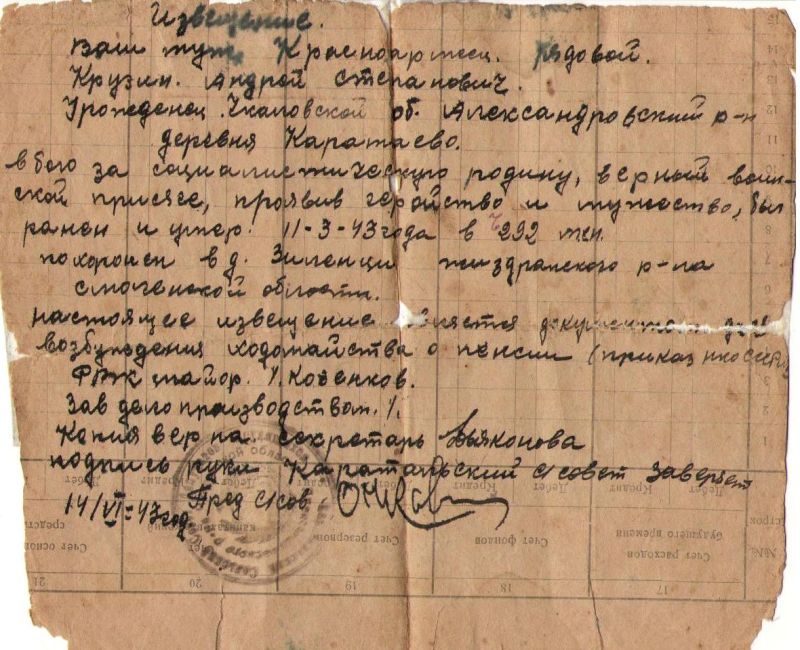 Извещение.
Ваш муж Красноармеец. рядовой.
Крузин. Андрей Степанович.
Уроженец. Чкаловской об. Александровский р-н
деревня Каратаево.
в бою за социалистическую родину, верный воин-
ской присяге, проявив геройство и мужество, был
ранен и умер. 11-3-43 года в 292 мсп.
похоронен в д. Зиленци жиздранского р-на
смоленской области.
настоящее извещение является документом для
возбуждения ходотайства о пенсии (приказ нко СССР
РВК майор. Коченков.
Зав делопроизводством.
Копия верна. секретарь Дьяконова
подпись руки Каратальский с/совет заверяет
14/VI-43 год Пред с/сов
15
14
13
12
11
10
9
8
7
6
5
3
2
1
Дебет Кредит Дебет Кредит Дебет Кредит Дебет
№№ строк
Счет расходов будущего времени
Счет фондов
Счет резервов
Счет основ средств
17
18
19
20
21